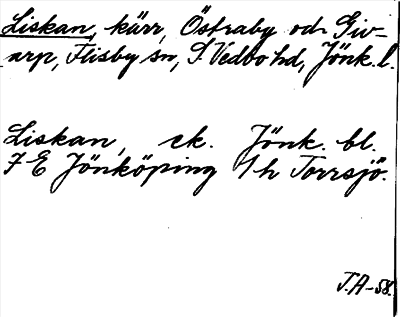 Liskan, kärr, Östraby och Giv-
arp, Flisby sn, S. Vedbo hd, Jönk. l.
Liskan, ek. Jönk. bl.
7 E Jönköping 1 h Torrsjö.
J.A-58.